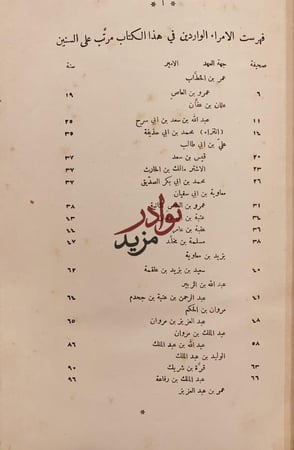 * ١ *
فهرست الامراء الواردين في هذا الكتاب مرتّب على السنين
صحيفة جهة العهد الامير سنة
عمر بن الخطّاب
٦ عمرو بن العاص ١٩
عثمان بن عفّان
١١ عبد الله بن سعد بن أبي سرح ٢٥
١٤ (انتزاء) محمد بن أبي حذيفة ٣٥
عليّ بن ابي طالب
٢٠ قيس بن سعد ٣٧
٢٣ الأشتر مالك بن الحارث ٣٧
٢٦ محمد بن أبي بكر الصدّيق ٣٧
معاوية بن أبي سفيان
٣١ عمرو بن العاص ثانية ٣٨
٣٤ عتبة بن ٤٣
٣٦ عقبة بن عامر
٣٨ مسلمة بن مخلد ٤٧
يزيد بن معاوية
٤٠ سعيد بن يزيد بن علقمة ٦٢
عبد الله بن الزبير
٤١ عبد الرحمن بن عتبة بن جحدم ٦٤
مروان بن الحكم
٤٨ عبد العزيز بن مروان ٦٥
عبد الملك بن مروان
٥٨ عبد الله بن عبد الملك ٨٦
الوليد بن عبد الملك
٦٣ قرّة بن شريك ٩٠
٦٦ عبد الملك بن رفاعة ٩٦
عمر بن عبد العزيز
*
نوادر
مزيد